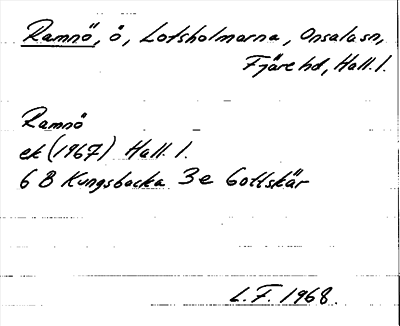 Ramnö, ö, Lotsholmarna, Onsala sn,
Fjäre hd, Hall. l.
Ramnö
ek (1967) Hall. l.
6 B Kungsbacka 3 e Gottskär
L.F. 1968.